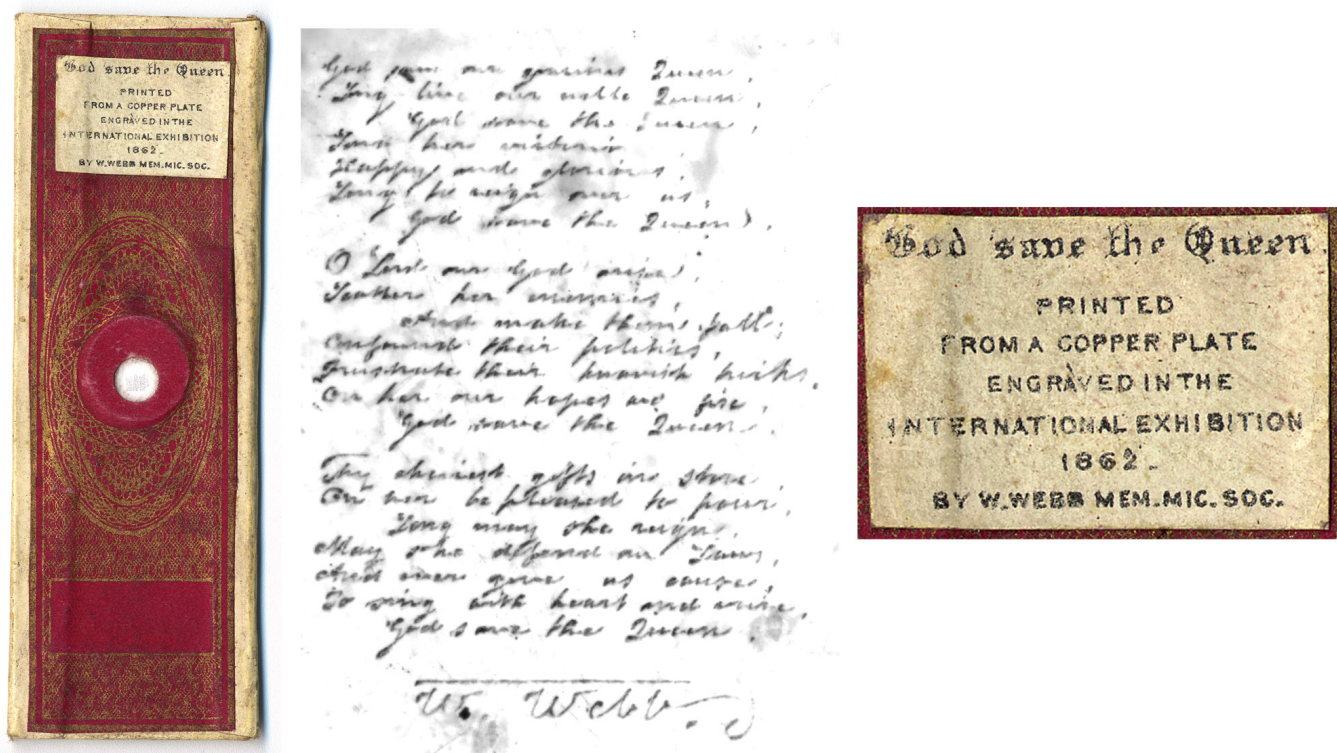 God save the Queen.
PRINTED
FROM A COPPER PLATE
ENGRAVED IN THE
INTERNATIONAL EXHIBITION
1862.
BY W. WEBB MEM. MIC. SOC.
God save our gracious Queen,
Long live our noble Queen,
God save the Queen,
her
Happy and glorious,
Long to reign over us,
God save the Queen.
O Lord our God arise,
Scatter her enemies,
And make them fall;
Confound their politics,
Frustrate their knavish tricks,
On her our hopes we fix,
God save the Queen.
Thy choicest gifts in store
On her be pleased to pour,
Long may she reign,
May she defend our Laws,
And ever give us cause,
To sing with heart and voice,
God save the Queen
W. Webb
God save the Queen.
PRINTED
FROM A COPPER PLATE
ENGRAVED IN THE
INTERNATIONAL EXHIBITION
1862.
BY W. WEBB MEM. MIC. SOC.